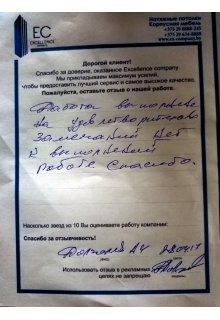 EC
EXCELLENCE
Натяжные потолки
Корпусная мебель
+375 29 8888 245
+375 29 634 8888
www.ec-company.by
Дорогой клиент!
Спасибо за доверие, оказанное Excellence company
Мы прикладываем максимум усилий,
чтобы предоставить лучший сервис и самое высокое качество.
Пожалуйста, оставьте отзыв о нашей работе.
Работа выполнена
на удовлетворительно
Замечаний нет
к выполненной
работе Спасибо.
Насколько звезд из 10 Вы оцениваете работу компании:
Спасибо за отзывчивость!
Использовать отзыв в рекламных
целях не запрещаю